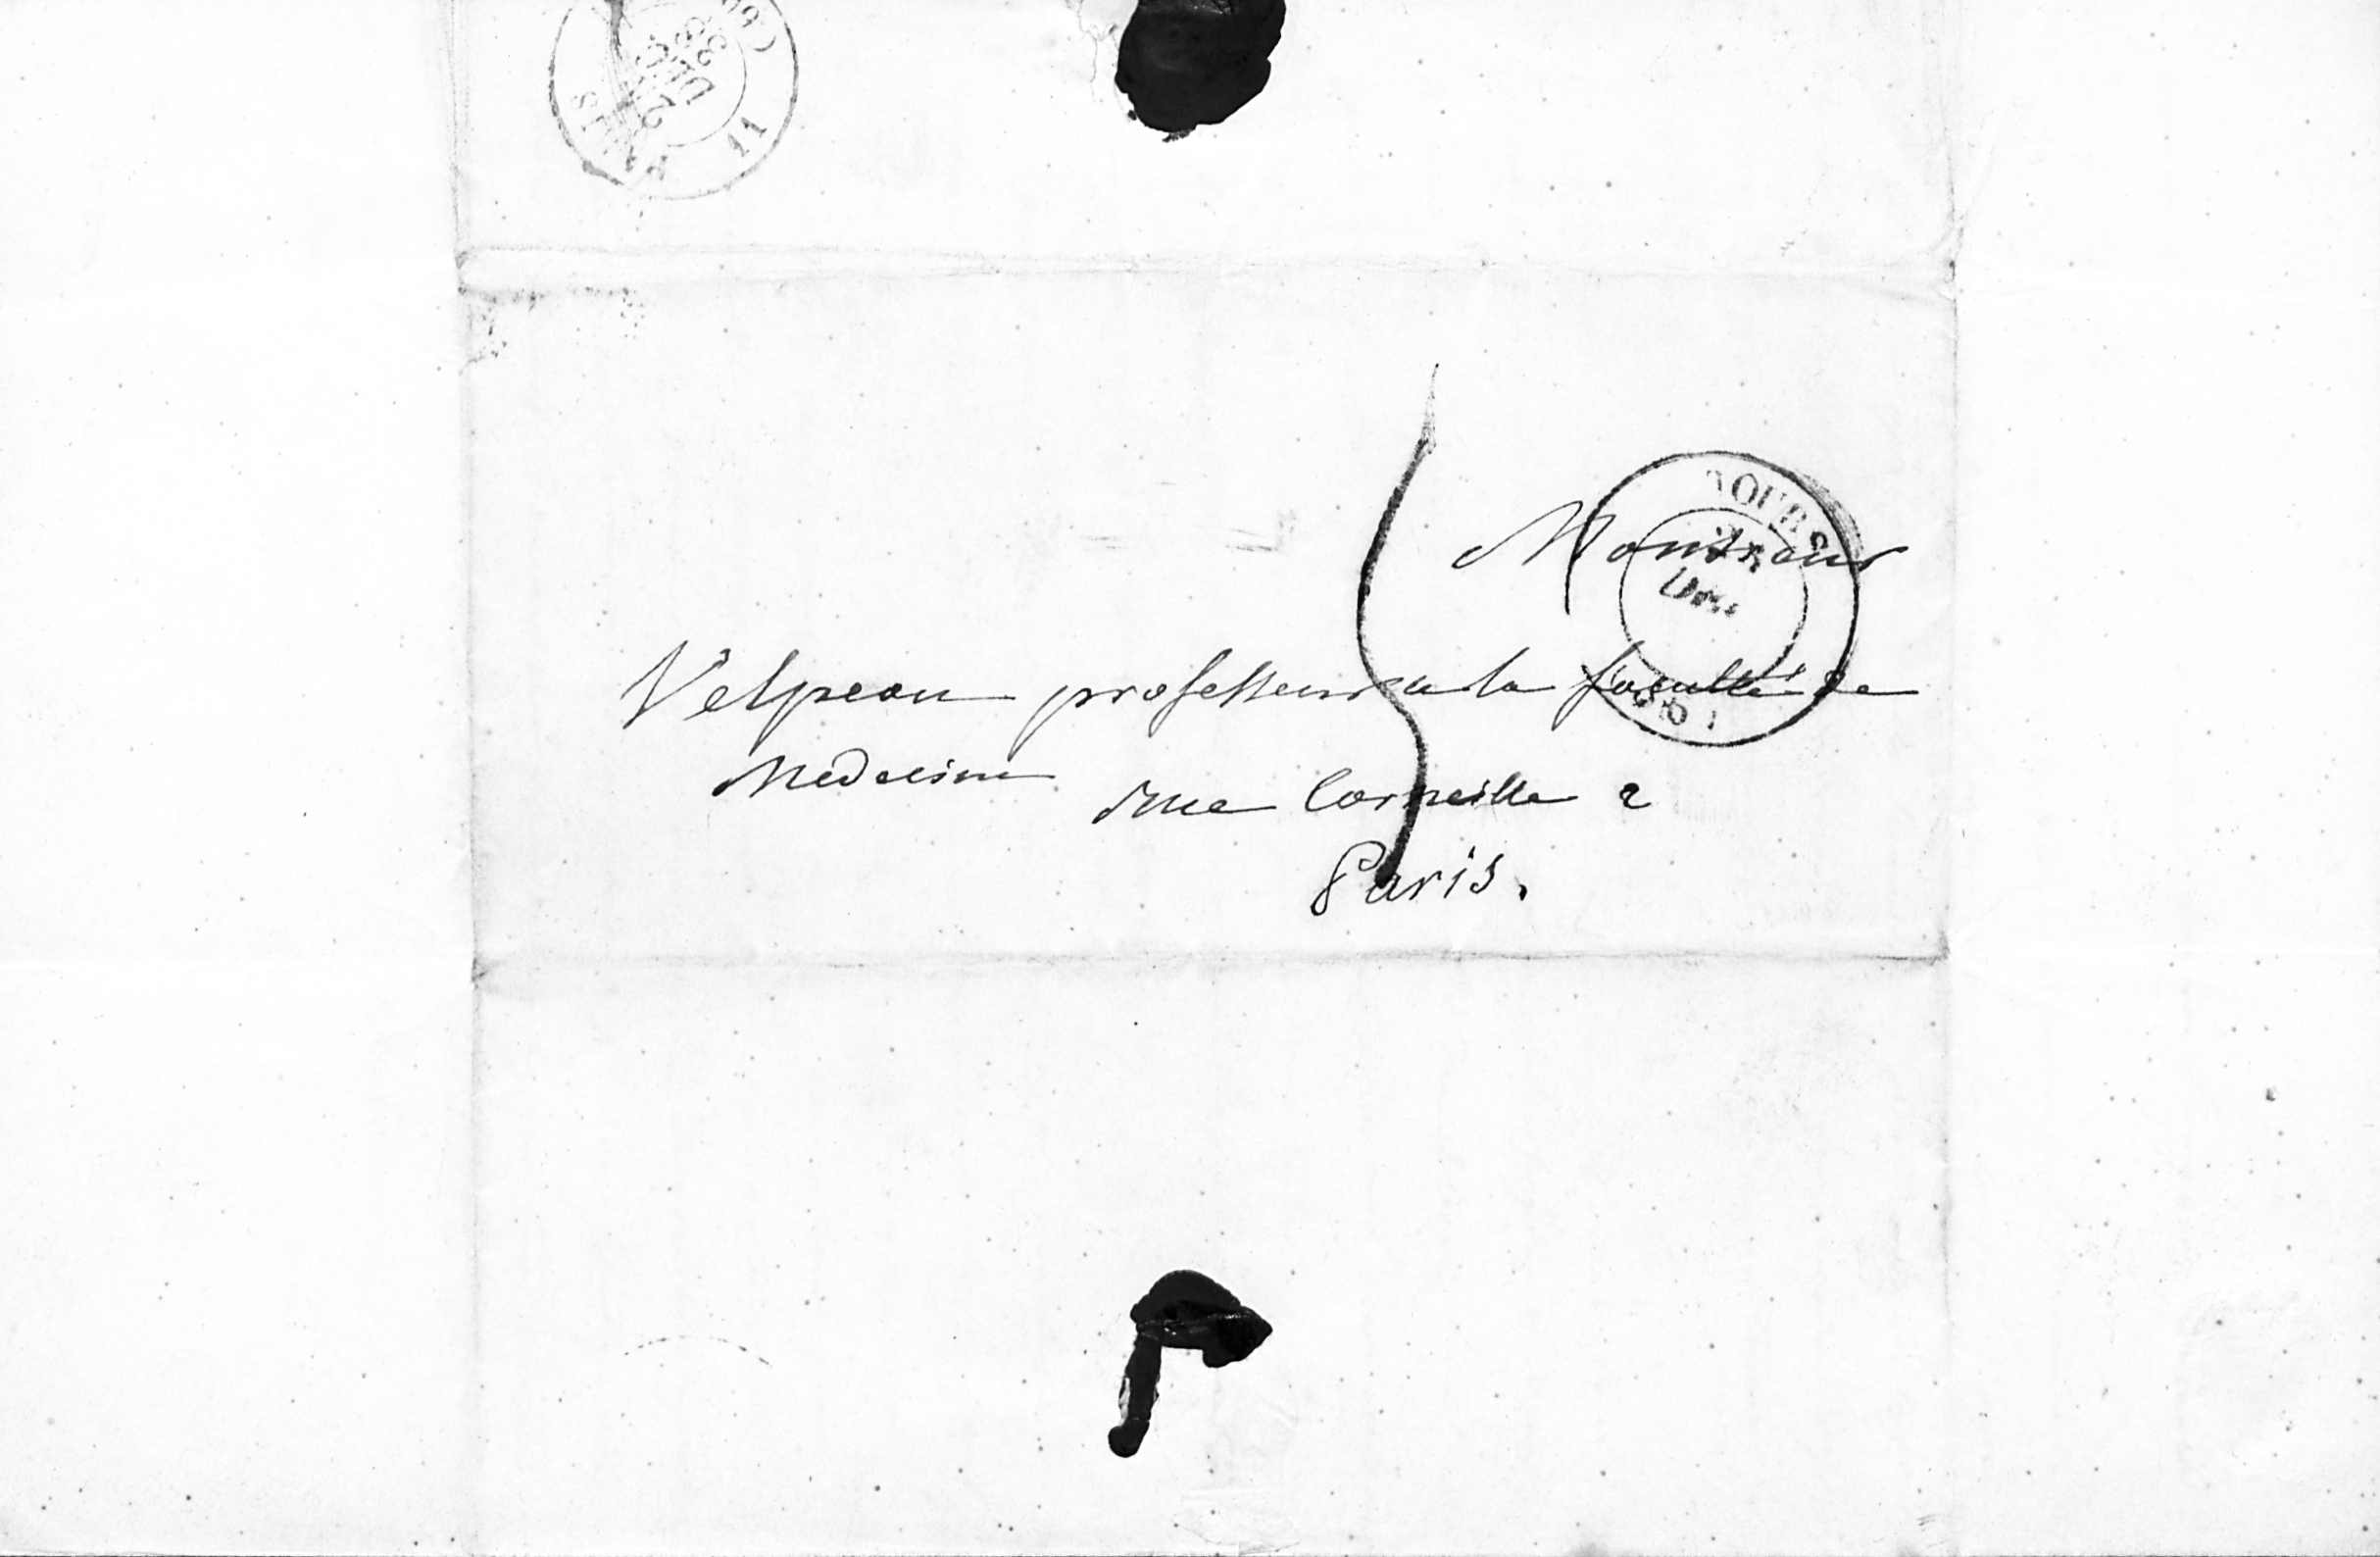 PARIS
2
DEC
38
11
TOURS
DEC
5
Monsieur
Velpeau professeur a la faculté de
Medecine rue Corneille 2
Paris.